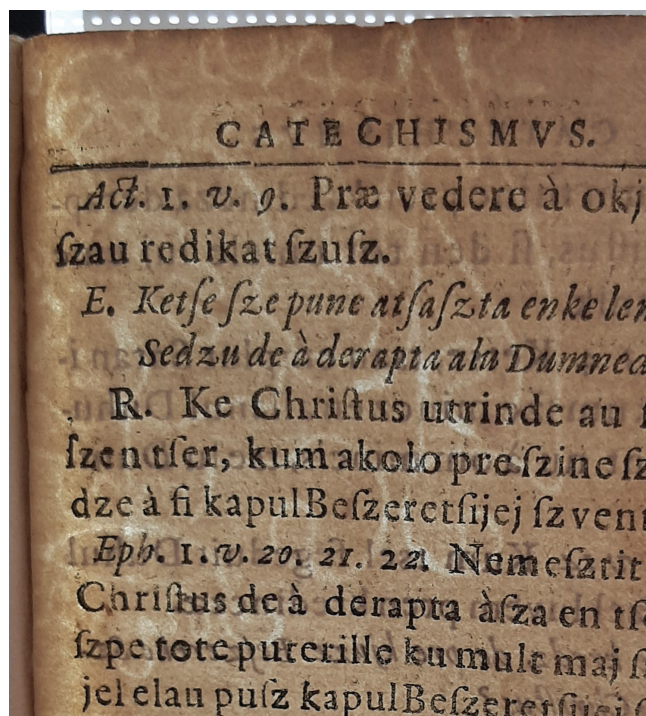 CATECHISMVS.
Act. 1. v. 9. Præ vedere à okj
ſzau redikat ſzuſz.
E. Ketſe ſze pune atſaſzta enke
Sedzu de à derapta alu
R. Ke Chriſtus utrinde au
ſzentſer, kum akolo pre ſzine
dze à fi kapul Beſzeretſijej
Eph. 1. v. 20. 21. 22. Nemeſztit
Chriſtus de à derapta àſza en
ſzpe tote puterille ku mult maj
jel elau puſz kapul Beſzeretſijej